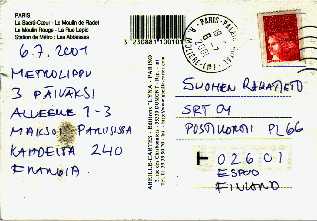 PARIS
Le Sacré-Cœur - Le Moulin de Radet
Le Moulin Rouge - La Rue Lepic
Station de Métro : Les Abbesses
6.7.2001
METROLIPPU
3 PÄIVÄKSI
ALUEELLE 1-3
MAKSOI PARIISISSA
KAHDELTA 240
FRANGIA
3 280881 130101
ABEILLE-CARTES - Editions "LYNA - PARIS"
PARIS
SUOMEN
SRT 04
POSTIKORTTI PL 66
T 02601
ESPOO
FINLAND